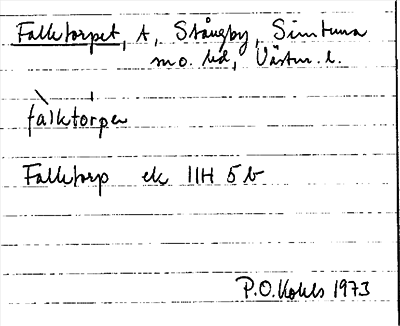 Falketorpet, t, Stångby, Simtuna
sn o. hd, Västm. l.
falktorpe
Falketorp ek 11H 5b
P.O. Kohls 1973